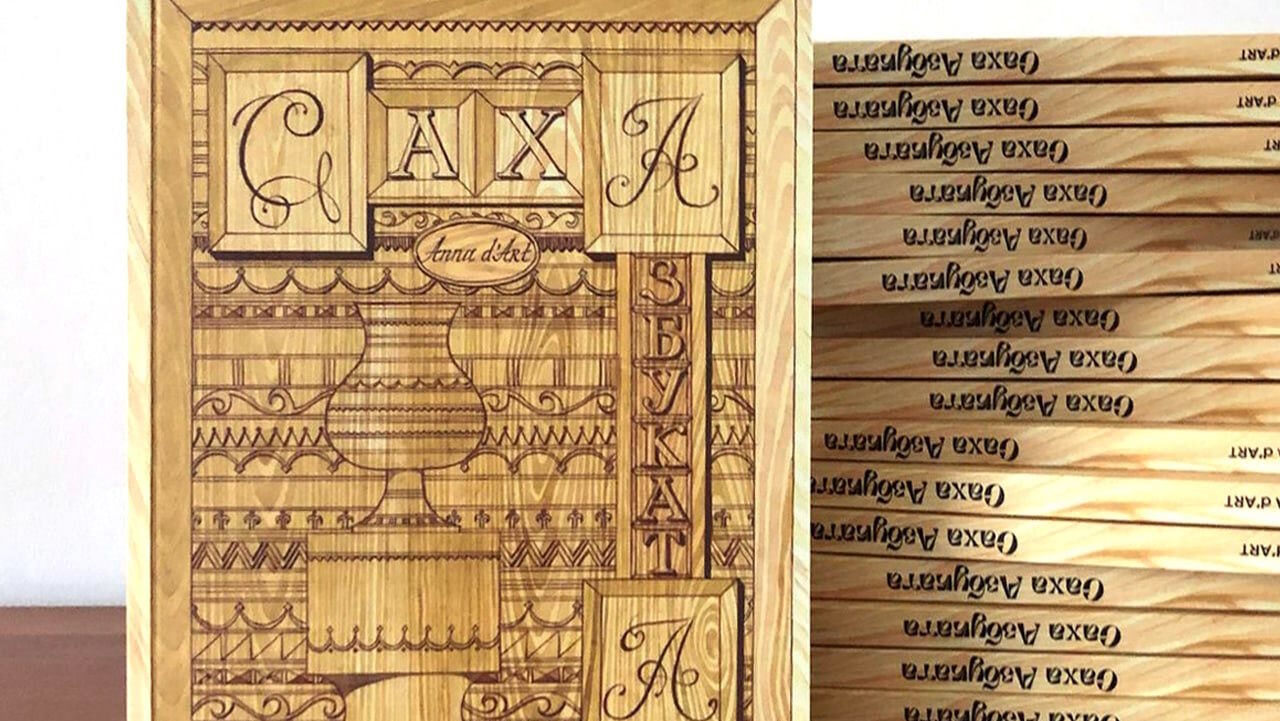 САХА
Anna d'Art
ЗБУКАТА
Саха Азбуката d'ART
Саха Азбуката d'ART
Саха Азбуката
Саха Азбуката
Саха Азбуката d'ART
Саха Азбуката
Саха Азбуката
Саха Азбуката
Саха Азбуката
Саха Азбуката d'ART
Саха Азбуката d'ART
Саха Азбуката d'ART
Саха Азбуката
Саха Азбуката
Саха Азбуката
Саха Азбуката